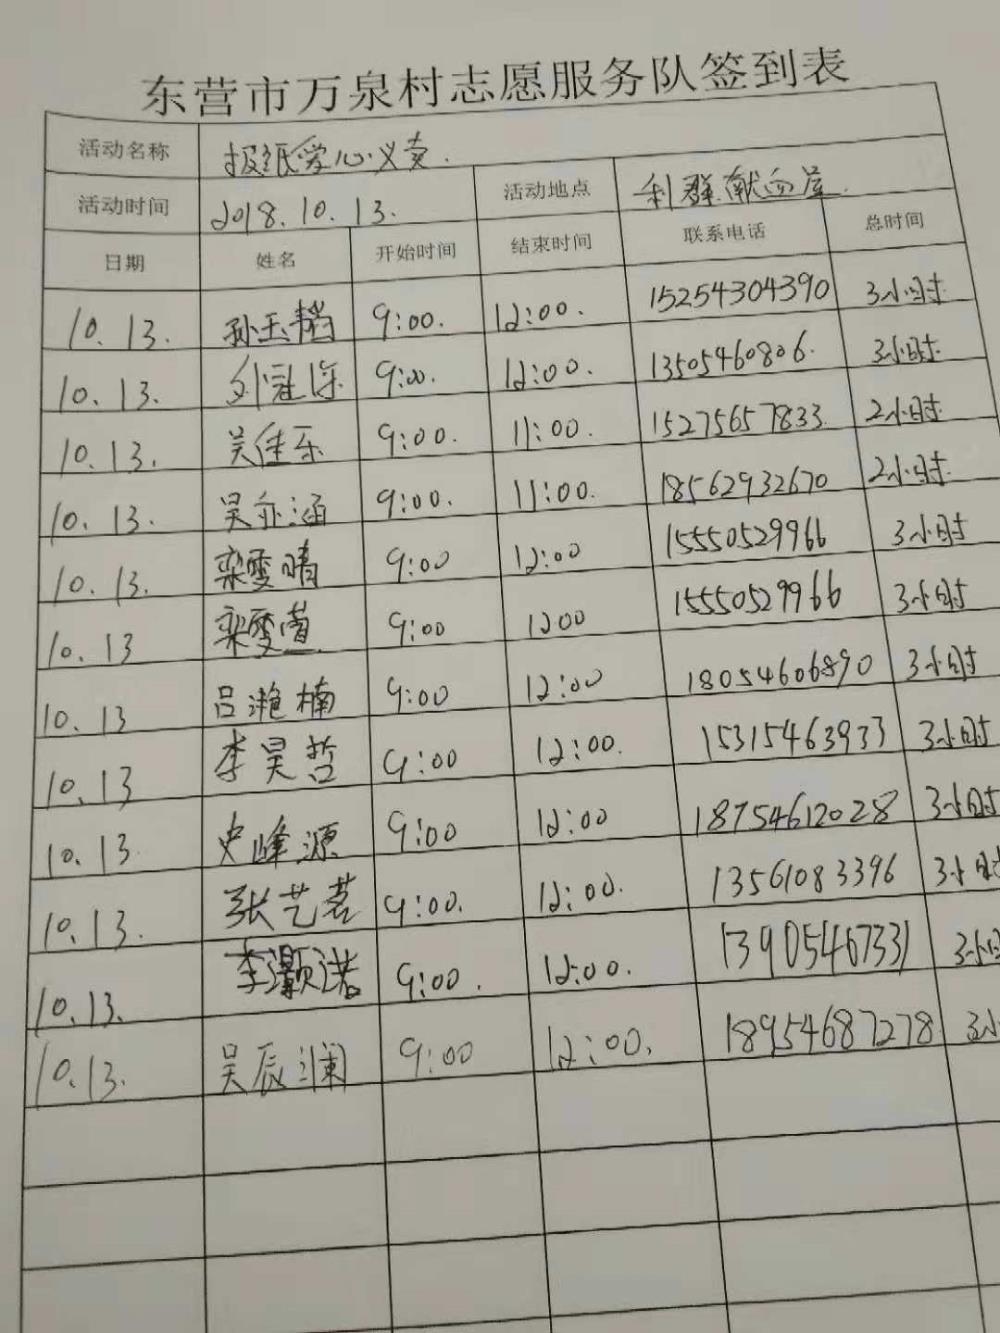 东营市万泉村志愿服务队签到表
活动名称 报纸爱心义卖.
活动时间 2018.10.13. 活动地点 利群献血屋.
日期 姓名 开始时间 结束时间 联系电话 总时间
10.13. 孙玉韬 9:00. 12:00. 15254304390 3小时
10.13. 9:00. 12:00. 13505460806. 3小时
10.13. 吴佳乐 9:00. 11:00. 15275657833 2小时
10.13. 吴亦涵 9:00. 11:00. 18562932670 2小时
10.13. 栾雯晴 9:00 12:00 15550529966 3小时
10.13 栾雯萱 9:00 1200 15550529966 3小时
10.13 吕滟楠 9:00 12:00 18054606890 3小时
10.13 李昊哲 9:00 12:00. 15315463933 3小时
10.13 史峰源 9:00 12:00 18754612028 3小时
10.13. 张艺茗 9:00. 12:00. 13561083396 3小时
10.13. 李灏诺 9:00. 12:00. 13905467331 3小时
10.13. 吴辰澜 9:00 12:00. 18954687278 3小